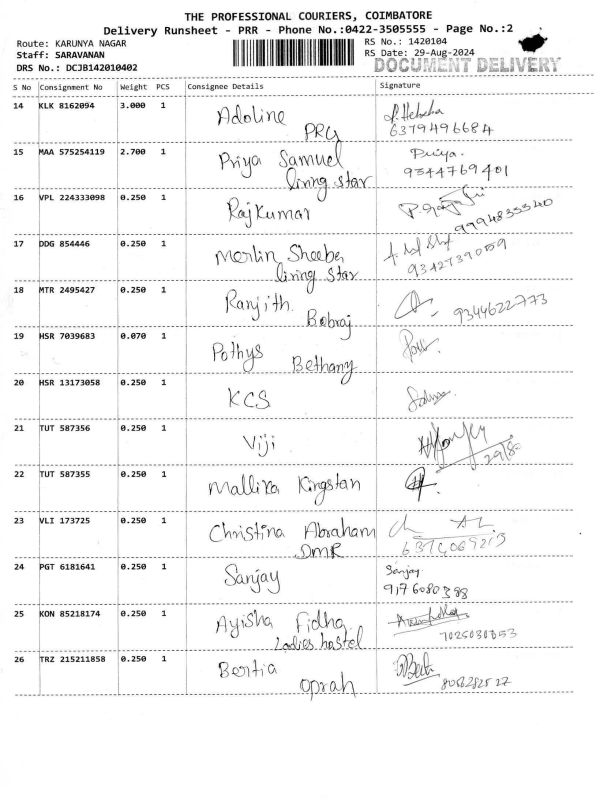 THE PROFESSIONAL COURIERS, COIMBATORE
Delivery Runsheet - PRR - Phone No.:0422-3505555 - Page No.:2
Route: KARUNYA NAGAR RS No.: 1420104
Staff: SARAVANAN RS Date: 29-Aug-2024
DRS No.: DCJB142010402 DOCUMENT DELIVERY
S No Consignment No Weight PCS Consignee Details Signature
14 KLK 8162094 3.000 1 Adoline
PRG 6379496684
15 MAA 575254119 2.700 1 Priya Samuel Priya.
living star 9344769401
16 VPL 224333098 0.250 1 Rajkumar
9994833340
17 DDG 854446 0.250 1 Merlin Sheeba
living star 9342739059
18 MTR 2495427 0.250 1 Ranjith.
Bobraj 9344622773
19 HSR 7039683 0.070 1 Pothys
Bethany
20 HSR 13173058 0.250 1 KCS
21 TUT 587356 0.250 1 Viji
22 TUT 587355 0.250 1 Mallika Kingstan
23 VLI 173725 0.250 1 Christina Abraham
DMR
24 PGT 6181641 0.250 1 Sanjay Sanjay
9176080388
25 KON 85218174 0.250 1 Ayisha Fidha
Ladies hostel 7025030853
26 TRZ 215211858 0.250 1 Bertia
oprah